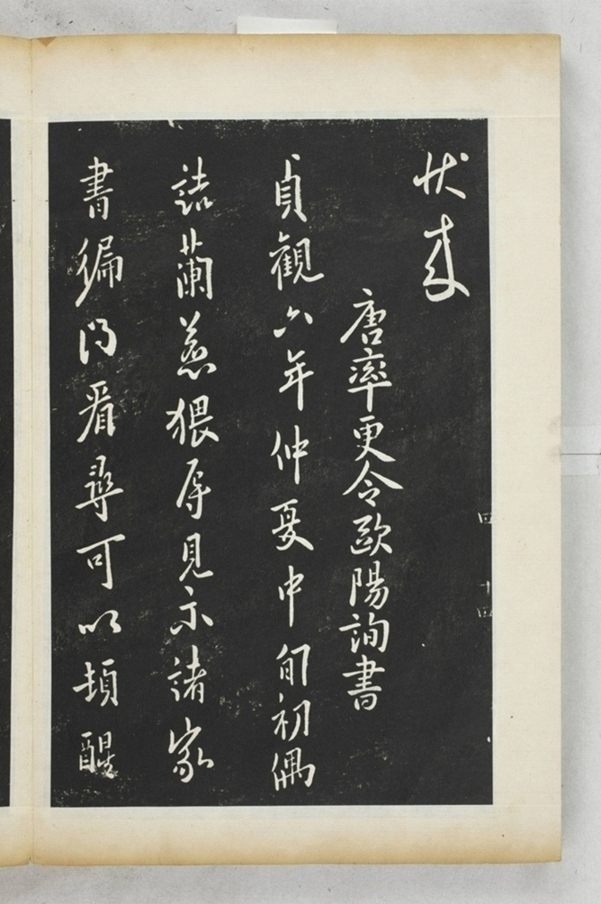 伏走
唐率更令歐陽詢書
貞觀六年仲夏中旬初偶
詰蘭若猥辱見示諸家
書編得看尋可以頓醒
四 十四